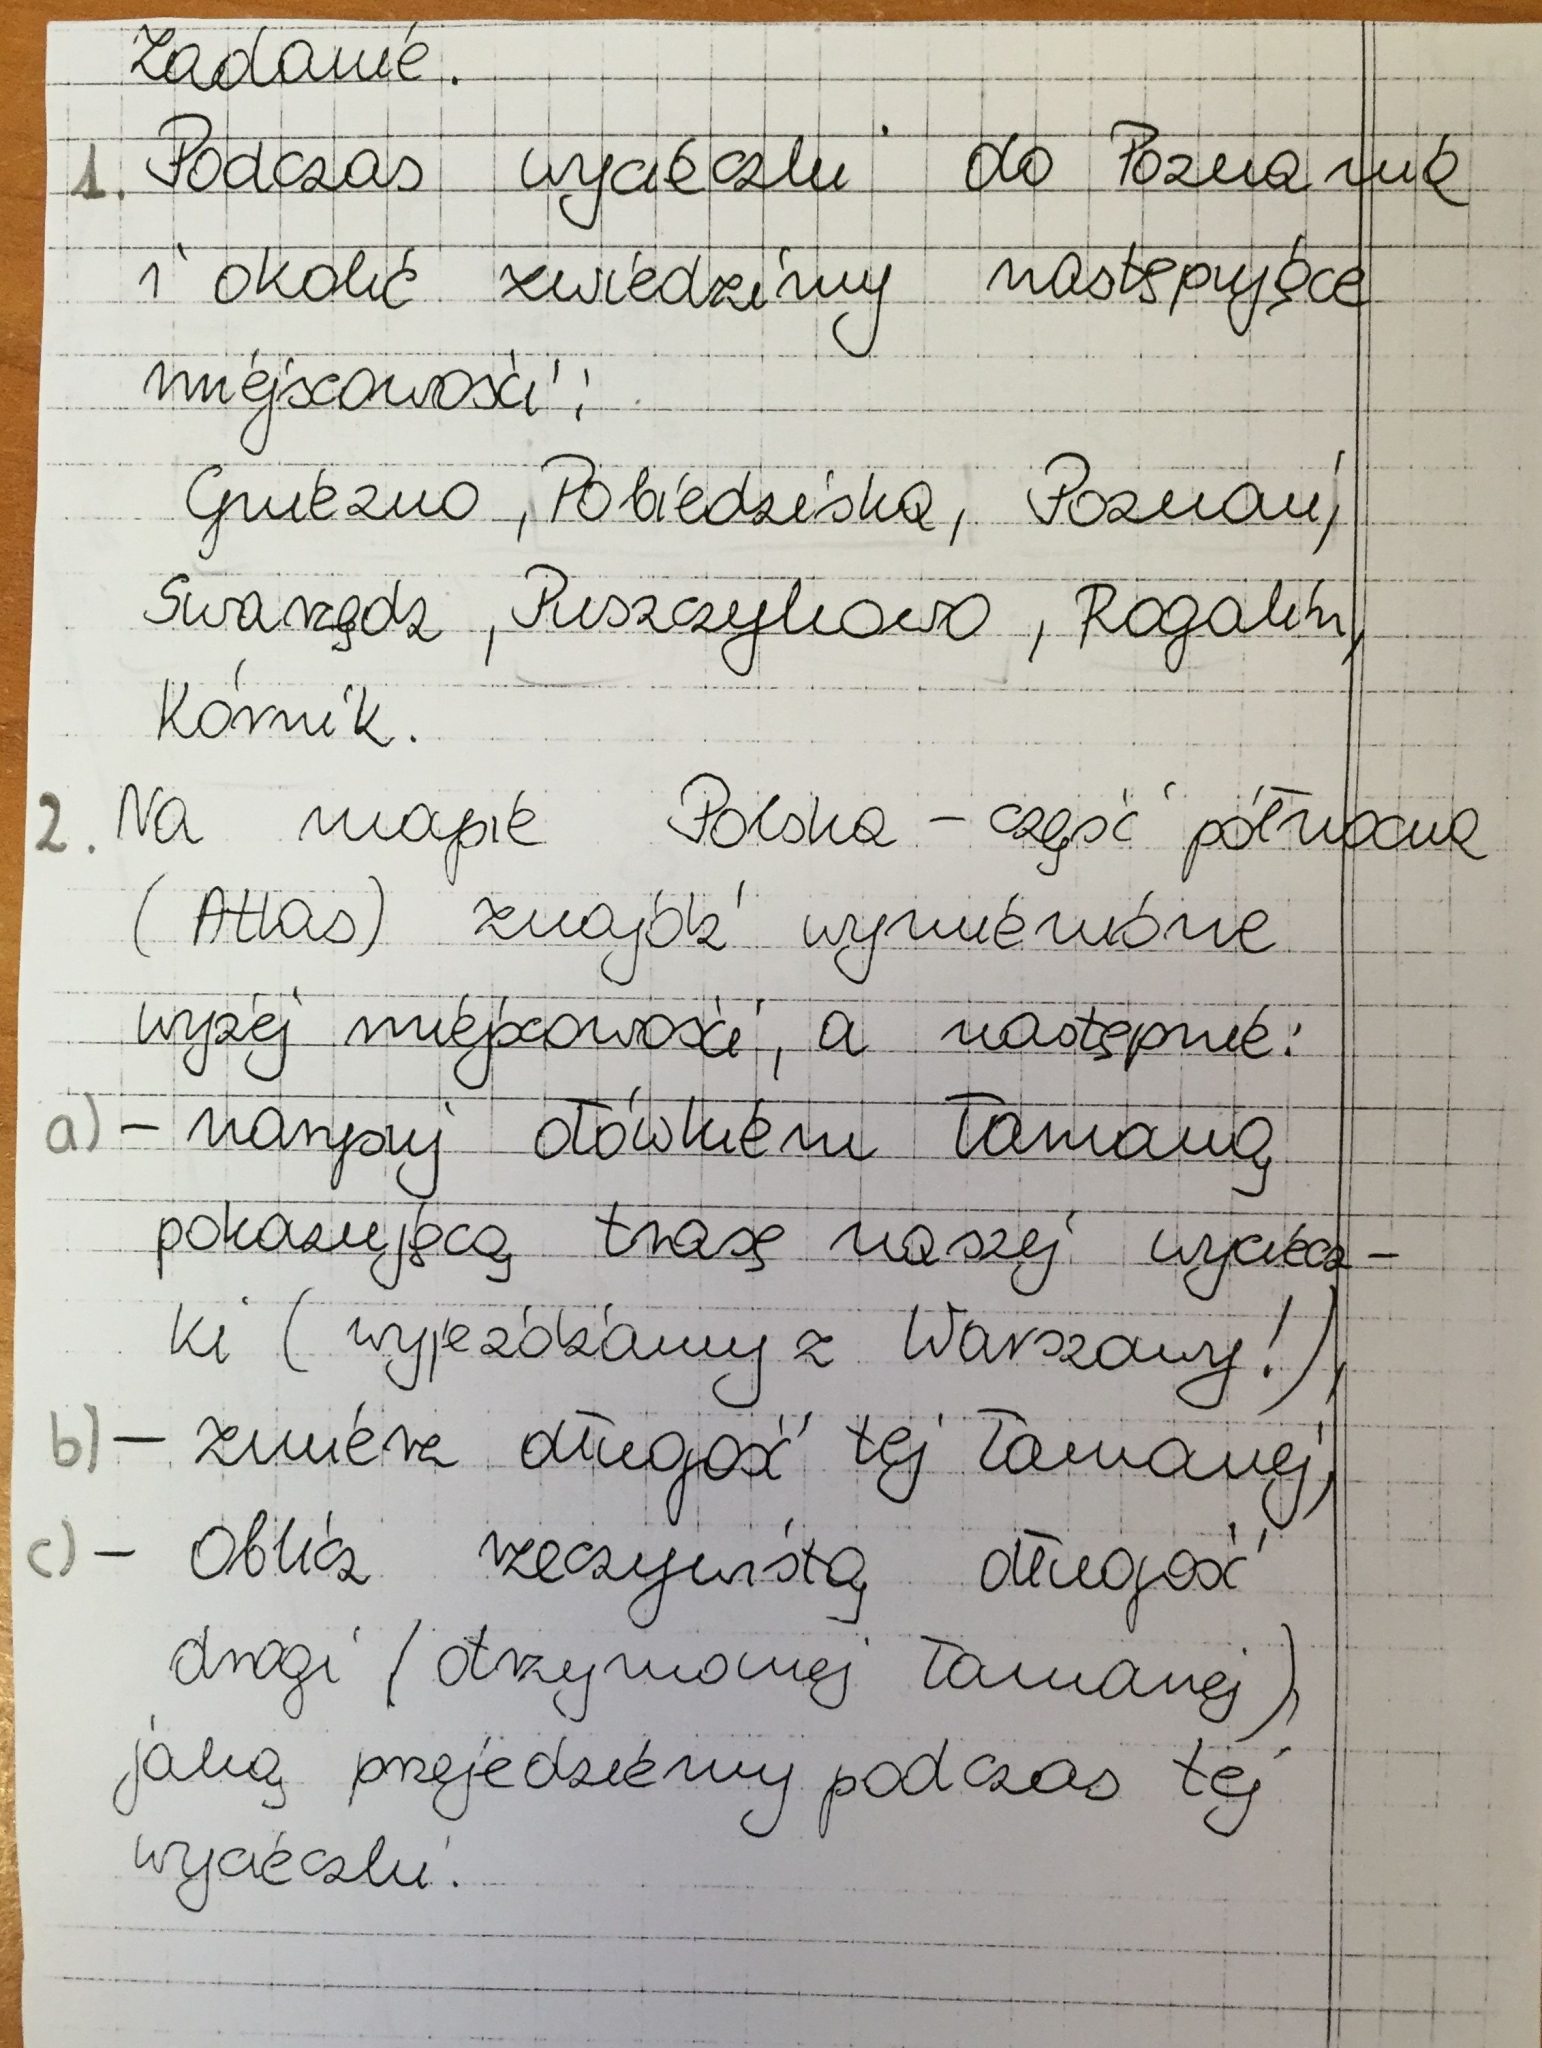 Zadanie.
1. Podczas wycieczki do Poznania
i okolic zwiedzimy następujące
miejscowości:
Gniezno, Pobiedziska, Poznań,
Swarzędz, Puszczykowo, Rogalin,
Kórnik.
2. Na mapie Polska - część północna
(Atlas) znajdź wymienione
wyżej miejscowości, a następnie:
a) - narysuj ołówkiem łamaną
pokazującą trasę naszej wyciecz-
ki (wyjeżdżamy z Warszawy!),
b) - zmierz długość tej łamanej,
c) - Oblicz rzeczywistą długość
drogi (otrzymanej łamanej),
jaką przejedziemy podczas tej
wycieczki.